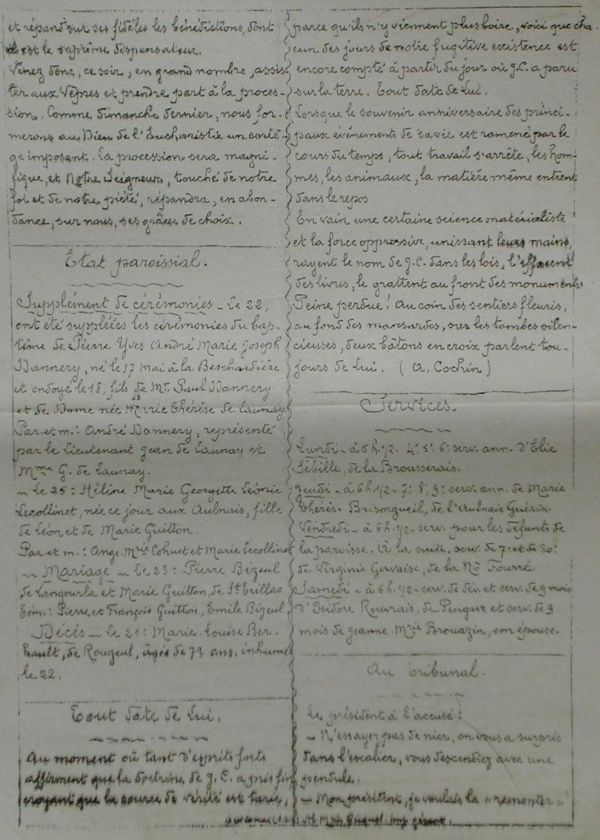 et répand sur ses fidèles les bénédictions, dont
il est le suprême dispensateur.
Venez donc, ce soir, en grand nombre, assis-
ter aux Vêpres et prendre part à la proces-
sion. Comme dimanche dernier, nous for-
merons au Dieu de l'Eucharistie un cortè-
ge imposant. La procession sera magni-
fique, et Notre Seigneur, touché de notre
foi et de notre piété, répandra, en abon-
dance, sur nous, ses grâces de choix.
Etat paroissial.
Supplément de cérémonies - Le 28,
ont été suppléées les cérémonies du bap-
tême de Pierre Yves André Marie Joseph
Dannery, né le 17 mai à la Beschardière
et ondoyé le 18, fils de Mr Paul Dannery
et de Dame née Marie Thérèse de Launay.
Par. et m.: André Dannery, représenté
par le lieutenant Jean de Launay et
Mme G. de Launay.
- Le 25: Hélène Marie Georgette Léonie
Lecollinet, née ce jour aux Aulnais, fille
de Léon et de Marie Guitton.
Par. et m.: Ange Mie Cohuet et Marie Lecollinet
Mariage - Le 23: Pierre Bizeul
de Langourla et Marie Guitton, de St
Tém: Pierre et François Guitton, Emile Bizeul
Décès - Le 21: Marie Louise Ber-
hault, de Rougeul, âgée de 79 ans, inhumée
le 22.
Tout date de Lui.
Au moment où tant d'esprits forts
affirment que la doctrine de J.C. a pris fin
croyant que la source de vérité est tarie,
parce qu'ils n'y viennent plus boire, voici que cha-
cun des jours de notre fugitive existence est
encore compté à partir du jour où J.C. a paru
sur la terre. Tout date de Lui.
Lorsque le souvenir anniversaire des princi-
paux événements de sa vie est ramené par le
cours du temps, tout travail s'arrête, les hom-
mes, les animaux, la matière même entrent
dans le repos
En vain une certaine science matérialiste
et la force oppressive, unissant leurs mains,
rayent le nom de J.C. dans les lois, l'effacent
des livres, le grattent au front des monuments
Peine perdue! Au coin des sentiers fleuris,
au fond des mansardes, sur les tombes silen-
cieuses, deux bâtons en croix parlent tou-
jours de Lui. (A. Cochin)
Services.
Lundi - à 6h.1/2. 4e 5e 6e serv. ann. d'Elie
Sébille, de la Brousserais.
Jeudi - à 6h.1/2 - 7e 8e 9e serv. ann. de Marie
Thérèse Brisorgueil, de l'Aulnais Guérin.
Vendredi - à 6h.1/2. serv. pour les défunts de
la paroisse. A la suite, serv. de 7e et de 30e
de Virginie Gervaise, de la Fourré
Samedi - à 6h.1/2 - serv. de et serv. de 9 mois
d'Isidore Rouxais, de et serv. de 9
mois de Jeanne Mie Brouazin, son épouse.
Au Tribunal.
Le président à l'accusé:
- N'essayez pas de nier, on vous a surpris
dans l'escalier, vous descendiez avec une
pendule.
- Mon président, je voulais la "remonter"
Imp. gérant.